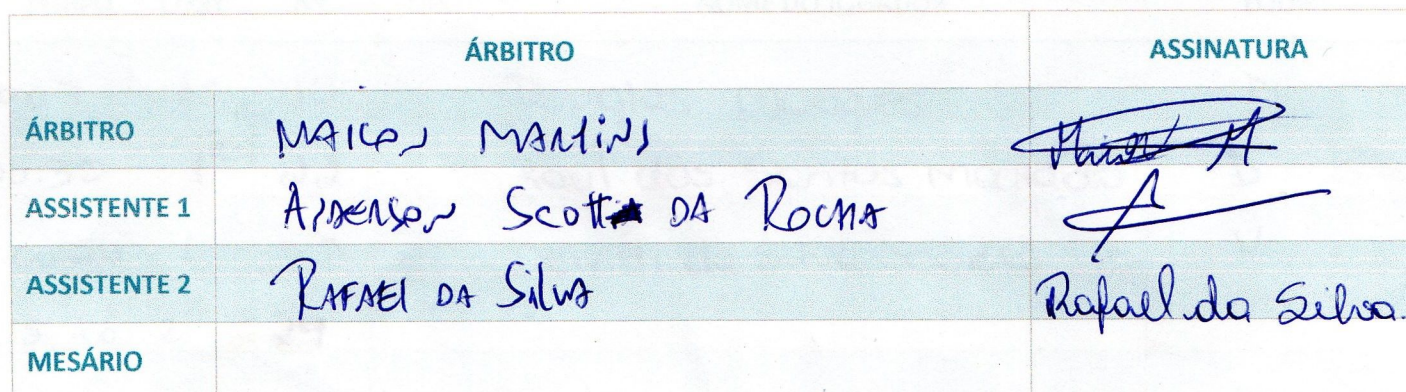 ÁRBITRO ASSINATURA
ÁRBITRO MAICON MARTINS
ASSISTENTE 1 ANDERSON SCOTT DA ROCHA
ASSISTENTE 2 RAFAEL DA SILVA Rafael da Silva.
MESÁRIO